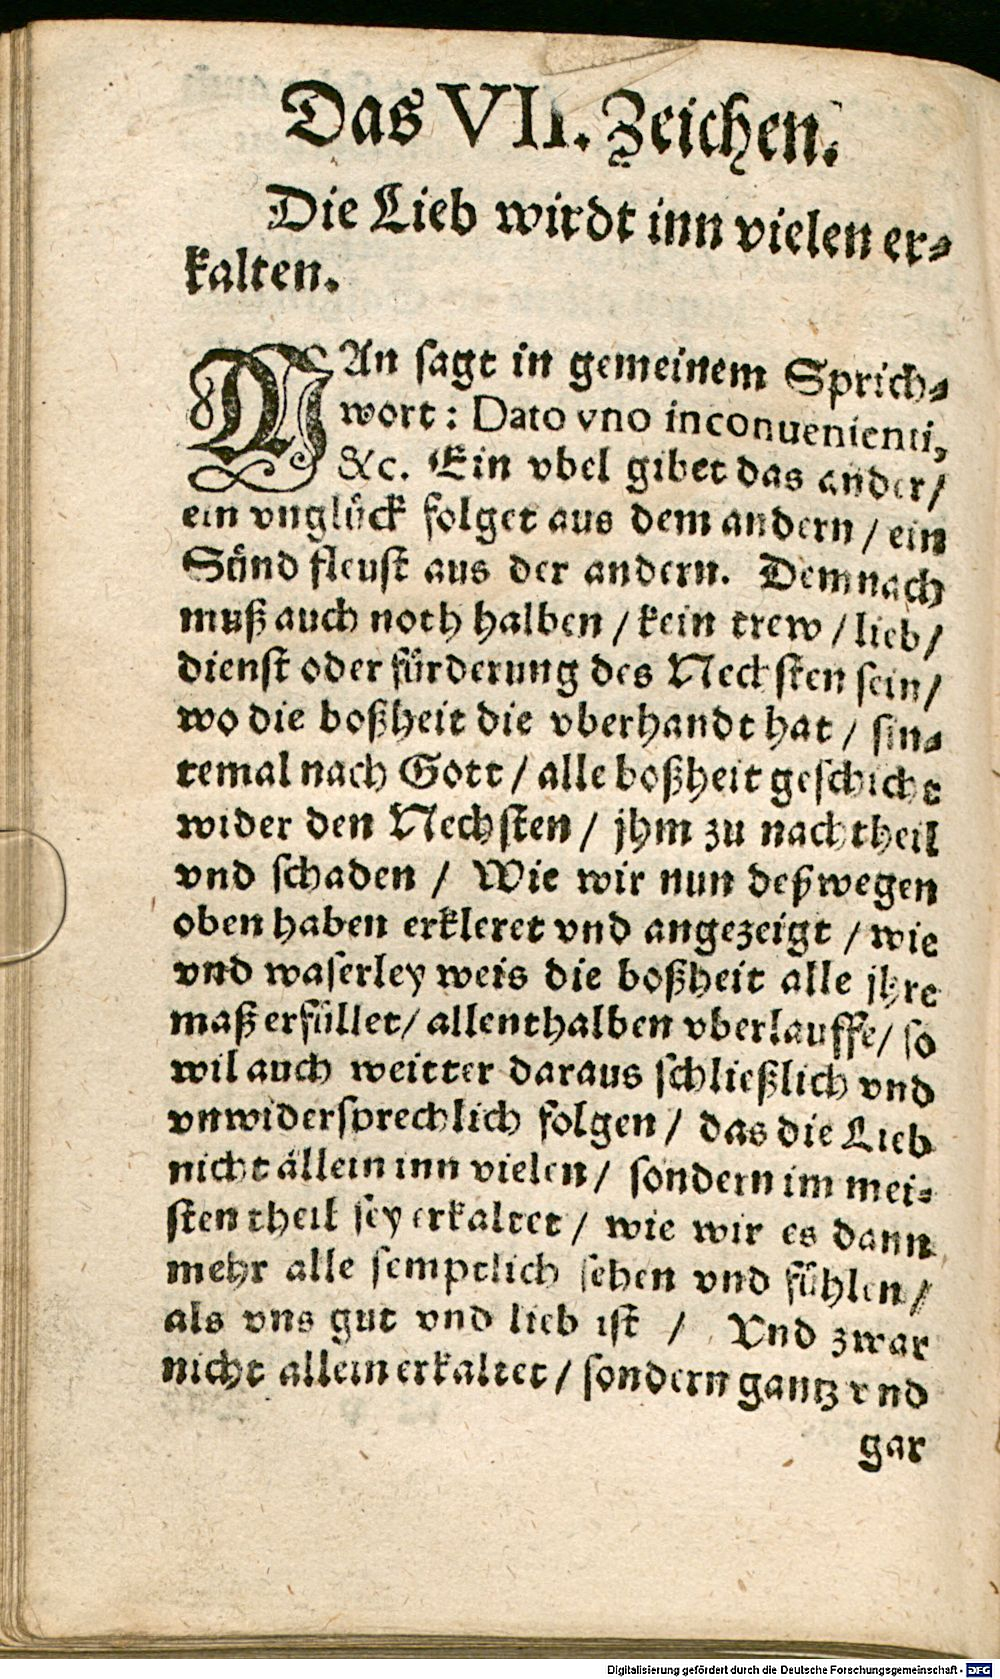 Das VII. Zeichen.
Die Lieb wirdt inn vielen er-
kalten.
MAn sagt in gemeinem Sprich-
wort: Dato vno inconuenienti,
&c. Ein vbel gibet das ander/
ein vnglück folget aus dem andern / ein
Sünd fleust aus der andern. Demnach
muß auch noth halben / kein trew / lieb/
dienst oder fürderung des Nechsten sein/
wo die boßheit die vberhandt hat / sin-
temal nach Gott / alle boßheit geschicht
wider den Nechsten / jhm zu nachtheil
vnd schaden / Wie wir nun deßwegen
oben haben erkleret vnd angezeigt / wie
vnd waserley weis die boßheit alle jhre
maß erfüllet/ allenthalben vberlauffe/ so
wil auch weitter daraus schließlich vnd
vnwidersprechlich folgen / das die Lieb
nicht allein inn vielen / sondern im mei-
sten theil sey erkaltet / wie wir es dann
mehr alle semptlich sehen vnd fühlen /
als vns gut vnd lieb ist / Vnd zwar
nicht allein erkaltet / sondern gantz vnd
gar
Digitalisierung gefördert durch die Deutsche Forschungsgemeinschaft - DFG